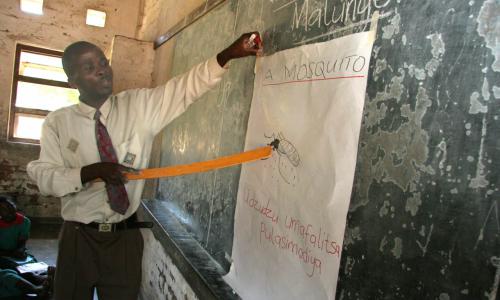 Malungo
A MOSQUITO
Udzudzu umafalitsa
Pulasimodiya